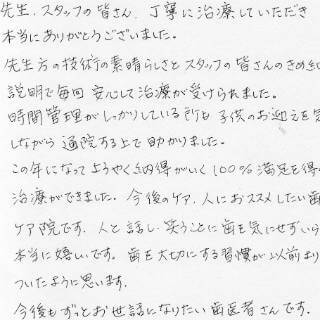 先生、スタッフの皆さん、丁寧に治療していただき
本当にありがとうございました。
先生方の技術の素晴らしさとスタッフの皆さんのきめ細
説明で毎回安心して治療が受けられました。
時間管理がしっかりしている所と子供のお迎えを気
しながら通院する上で助かりました。
この年になってようやく納得がいく100%満足を得
治療ができました。今後のケア、人におススメしたい歯
ケア院です。人と話し、笑うことに歯を気にせずいら
本当に嬉しいです。歯を大切にする習慣が以前より
ついたように思います。
今後もずっとお世話になりたい歯医者さんです。